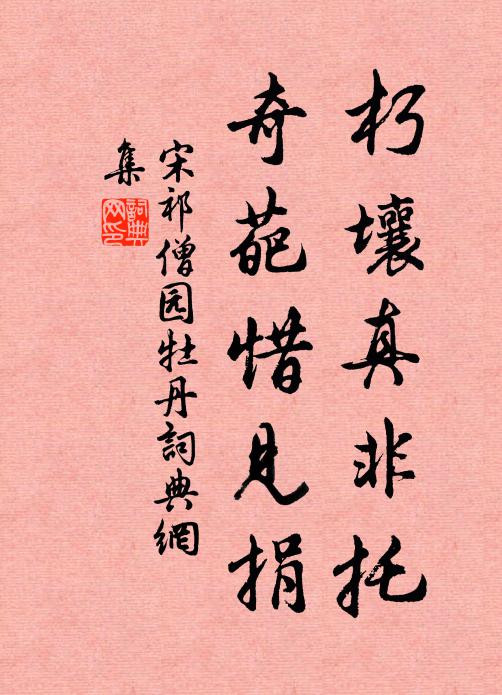 朽壤真非托
奇葩惜见捐
宋祁僧园牡丹詞典網
集
詞典网印